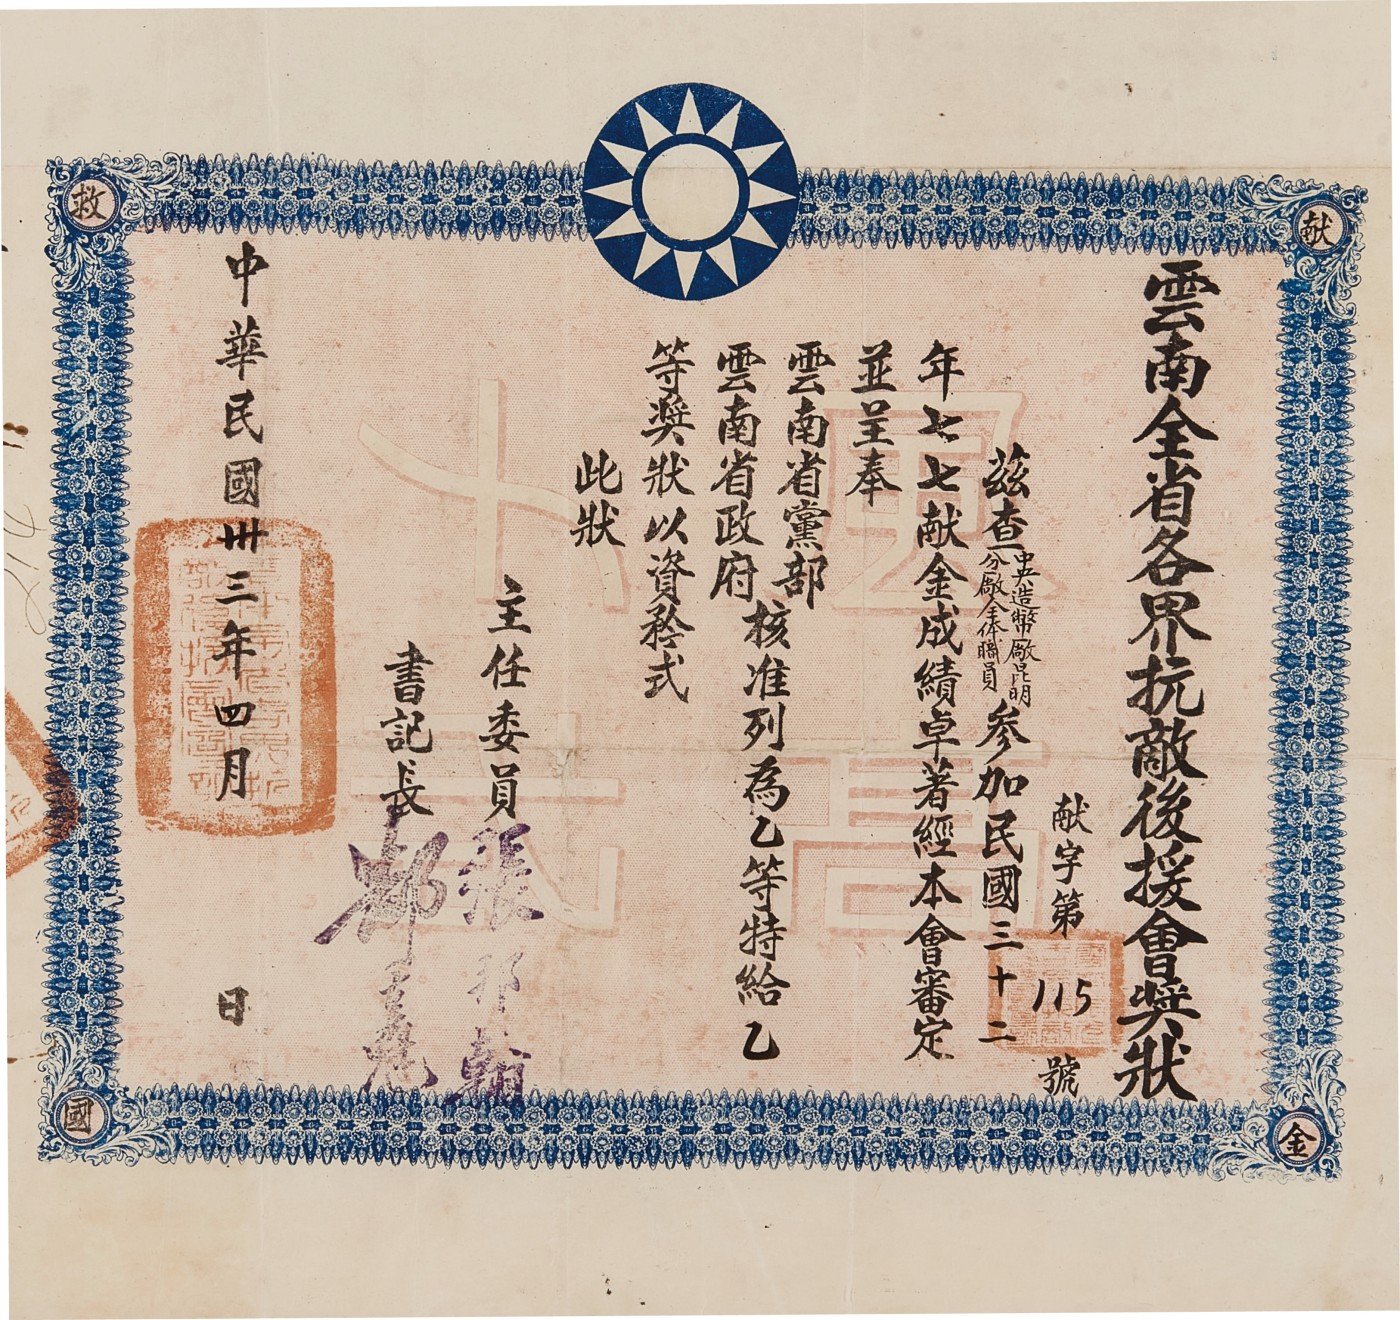 献
金
救
國
雲南全省各界抗敵後援會奨狀
献字第115號
茲查中央造幣廠昆明分廠全体職員参加民國三十二
年七七献金成績卓著經本會審定
並呈奉
雲南省黨部
雲南省政府
核准列為乙等特給乙
等奨狀以資矜式
此狀
主任委員張邦翰
書記長
中華民國卅三年四月 日